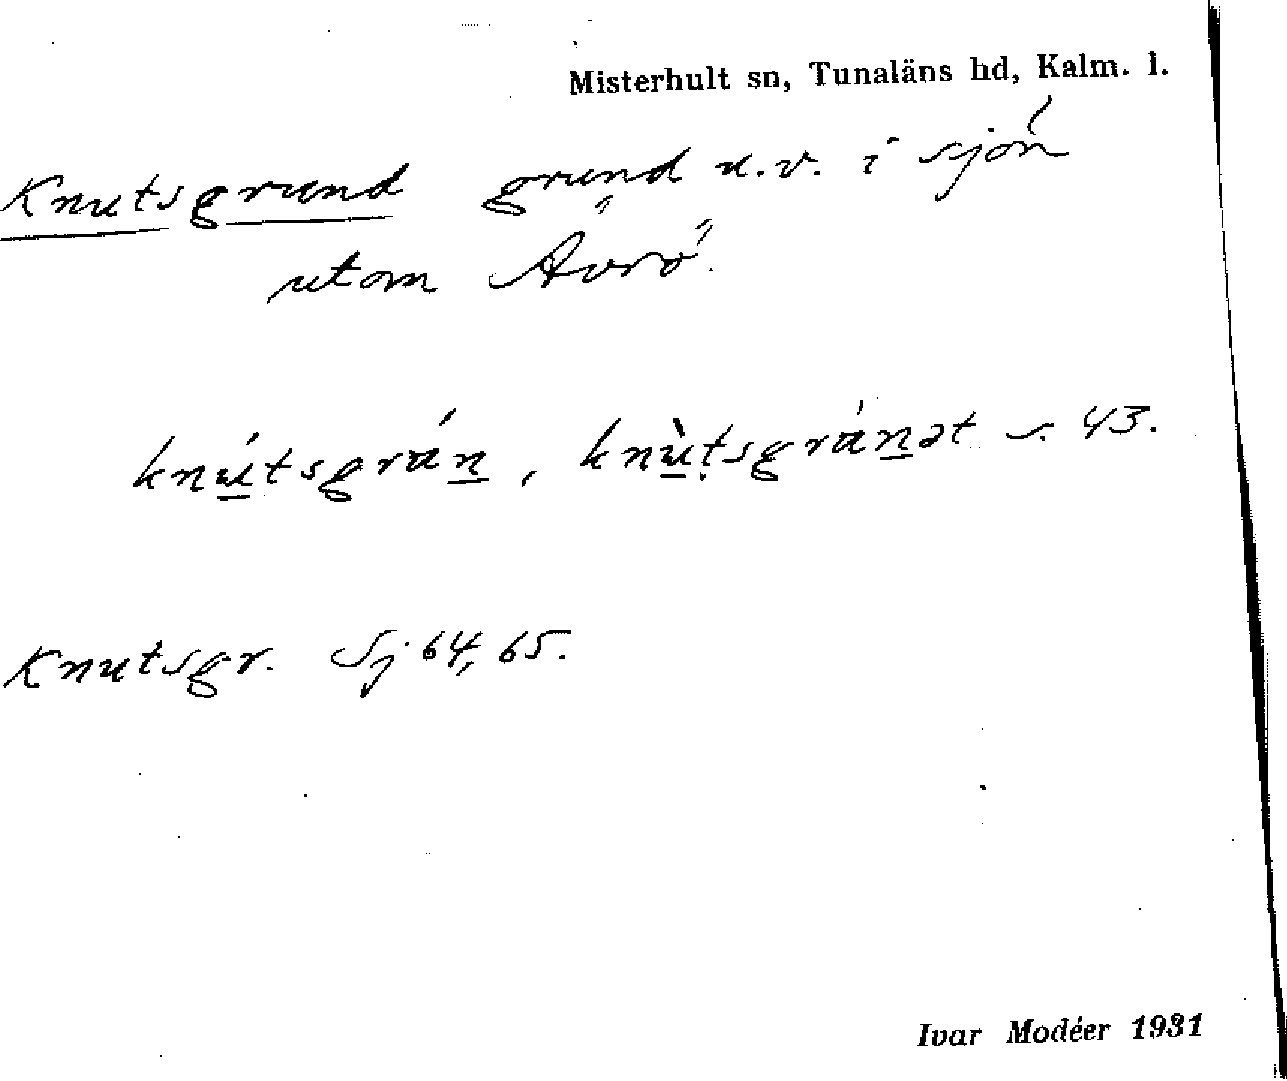 Misterhult sn, Tunaläns hd, Kalm. l.
Knutsgrund grund u.v. i sjön
utom Ävrö.
knútsgrán, knùtsgránət s. 43.
Knutsgr. Sj 64, 65.
Ivar Modéer 1931